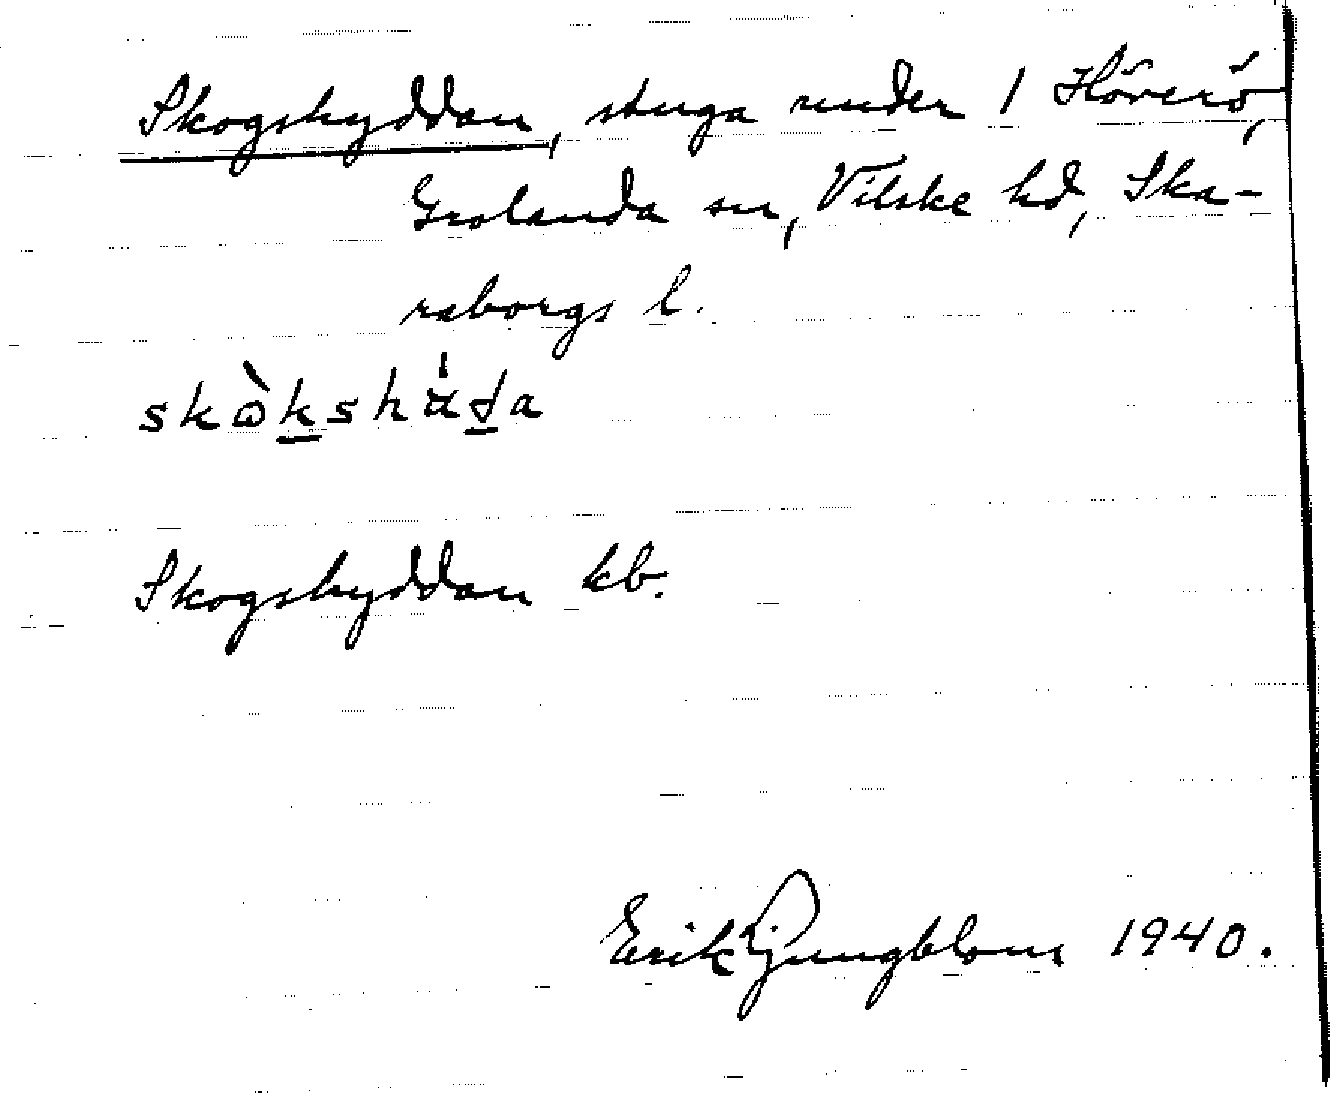 Skogshyddan, stuga under 1 Höverö,
Grolanda sn, Vilske hd, Ska-
raborgs l.
Skogshyddan kb.
Erik Ljungblom 1940.